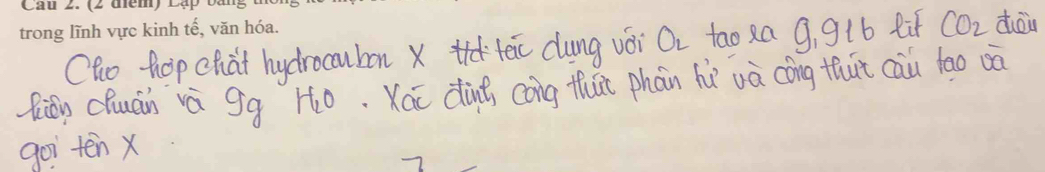 Câu 2. (2 điểm) Lập bảng
trong lĩnh vực kinh tế, văn hóa.
Cho hợp chất hydrocacbon X tác dụng với O2 tạo ra 9,916 lít CO2 điều
kiện chuẩn và 9g H2O. Xác định công thức phân tử và công thức cấu tạo và
gọi tên X